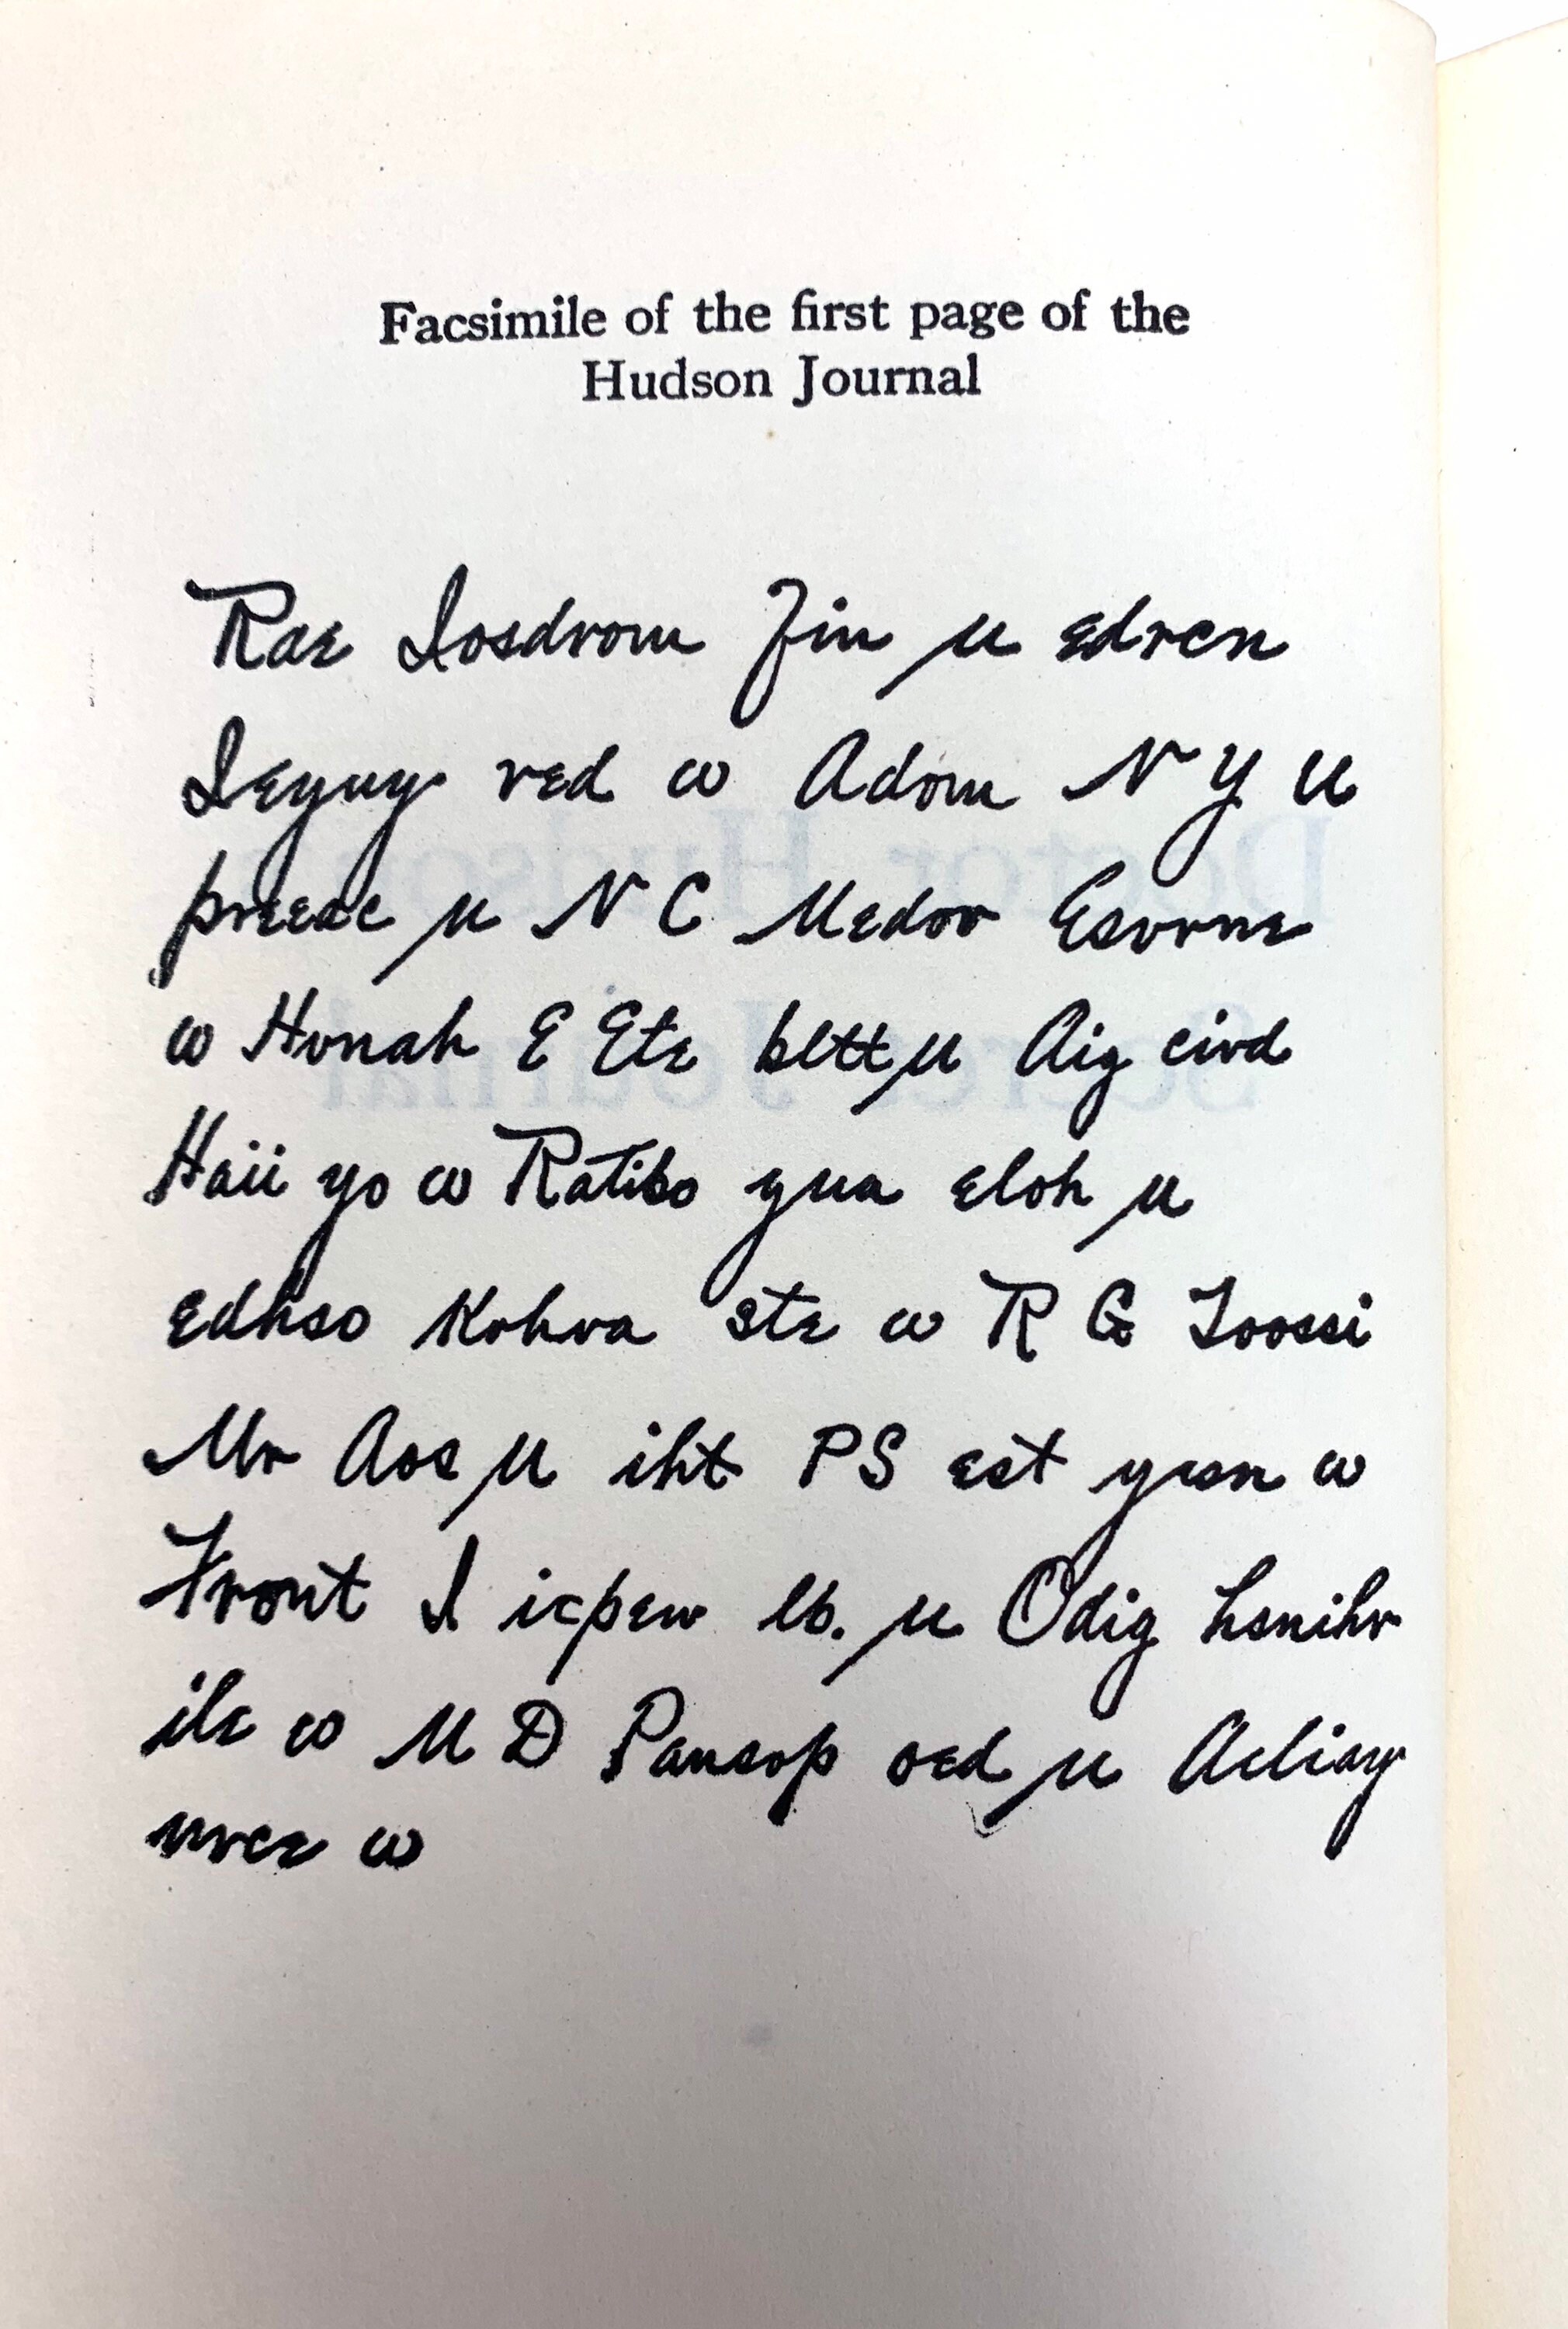 Facsimile of the first page of the
Hudson Journal
Rae Iosdrom Fin µ edrcn
Ieyuy red ω Adom N Y U
preeac µ N C Medor Esvrne
ω Hvnah E Ete bltt µ Aig civd
Haii yo ω Ratibo yua eloh µ
edhso kohva ste ω R G Toossi
Mr Aos µ iht PS est yesn ω
Front I icpew lb. µ Odig hsnihr
ile ω M D Pansop oed µ Aeliay
urce ω